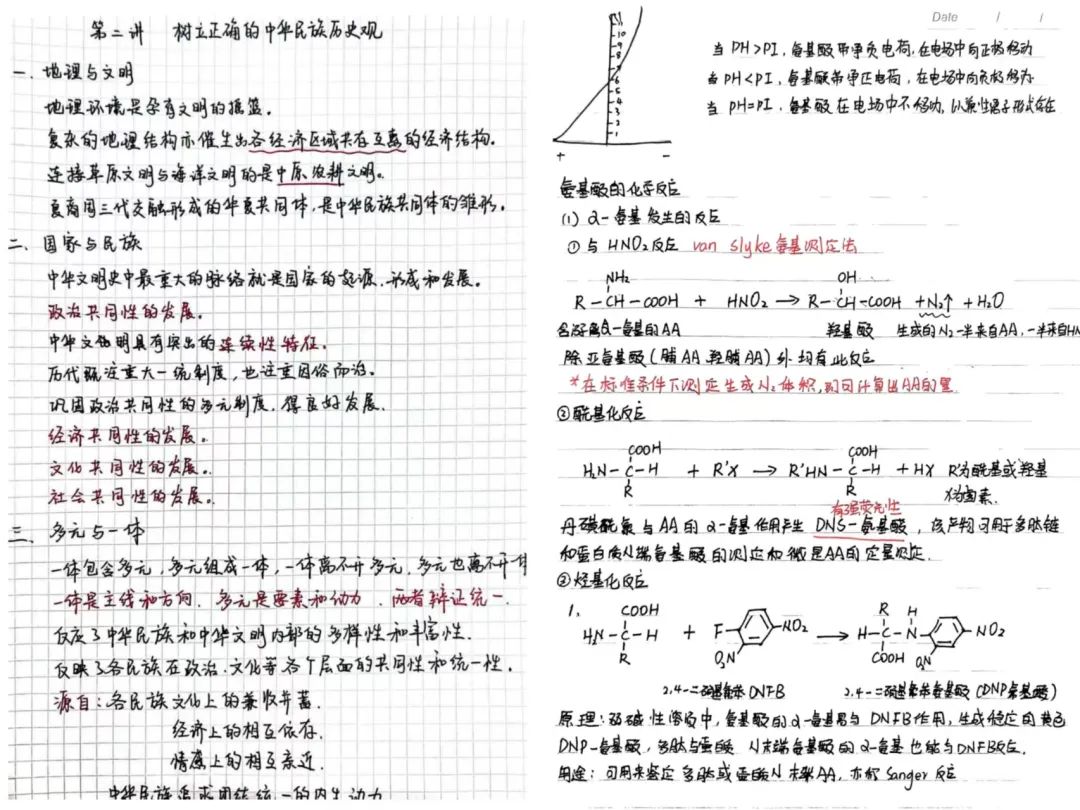 第二讲 树立正确的中华民族历史观
一、地理与文明
地理环境是孕育文明的摇篮。
复杂的地理结构亦催生出各经济区域共存互惠的经济结构。
连接草原文明与海洋文明的是中原农耕文明。
夏商周三代交融形成的华夏共同体，是中华民族共同体的雏形。
二、国家与民族
中华文明史中最重大的脉络就是国家的起源、形成和发展。
政治共同性的发展。
中华文明具有突出的连续性特征。
历代既注重大一统制度，也注重因俗而治。
巩固政治共同性的多元制度，得良好发展。
经济共同性的发展。
文化共同性的发展。
社会共同性的发展。
三、多元与一体
一体包含多元，多元组成一体，一体离不开多元，多元也离不开一体
一体是主线和方向，多元是要素和动力，两者辩证统一.
反应了中华民族和中华文明内部的多样性和丰富性.
反映了各民族在政治、文化等各个层面的共同性和统一性.
源自：各民族文化上的兼收并蓄.
经济上的相互依存.
情感上的相互亲近.
中华民族追求团结统一的内生动力
Date / /
10
9
8
7
6
5
4
3
2
1
+ −
当 PH>PI，氨基酸带净负电荷，在电场中向正极移动
当 PH<PI，氨基酸带净正电荷，在电场中向负极移动
当 PH=PI，氨基酸在电场中不移动，以兼性离子形式存在
氨基酸的化学反应
(1) α-氨基发生的反应
① 与 HNO₂反应 van slyke 氨基测定法
NH₂ OH
R-CH-COOH + HNO₂ → R-CH-COOH + N₂↑ + H₂O
α-氨基的AA 羟基酸 生成的N₂一半来自AA，一半来自HN
除亚氨基酸(脯AA、羟脯AA)外均有此反应
*在标准条件下测定生成N₂体积，即可计算出AA的量
②酰基化反应
COOH COOH
H₂N-C-H + R'X → R'HN-C-H + HX R'为酰基或羟基
R R X为卤素.
有强荧光性
丹磺酰氯与AA的α-氨基作用产生 DNS-氨基酸，该产物可用于多肽链
和蛋白质N端氨基酸的测定和微量AA的定量测定.
② 烃基化反应
1. COOH R H
H₂N-C-H + F- -NO₂ → H-C-N- -NO₂
R O₂N COOH O₂N
2,4-二硝基氟苯DNFB 2,4-二硝基苯氨基酸(DNP氨基酸)
原理：弱碱性溶液中，氨基酸的α-氨基易与DNFB作用，生成稳定的黄色
DNP-氨基酸，多肽与蛋白质 N末端氨基酸的α-氨基也能与DNFB反应.
用途：可用来鉴定多肽或蛋白质N末端AA，亦称Sanger反应